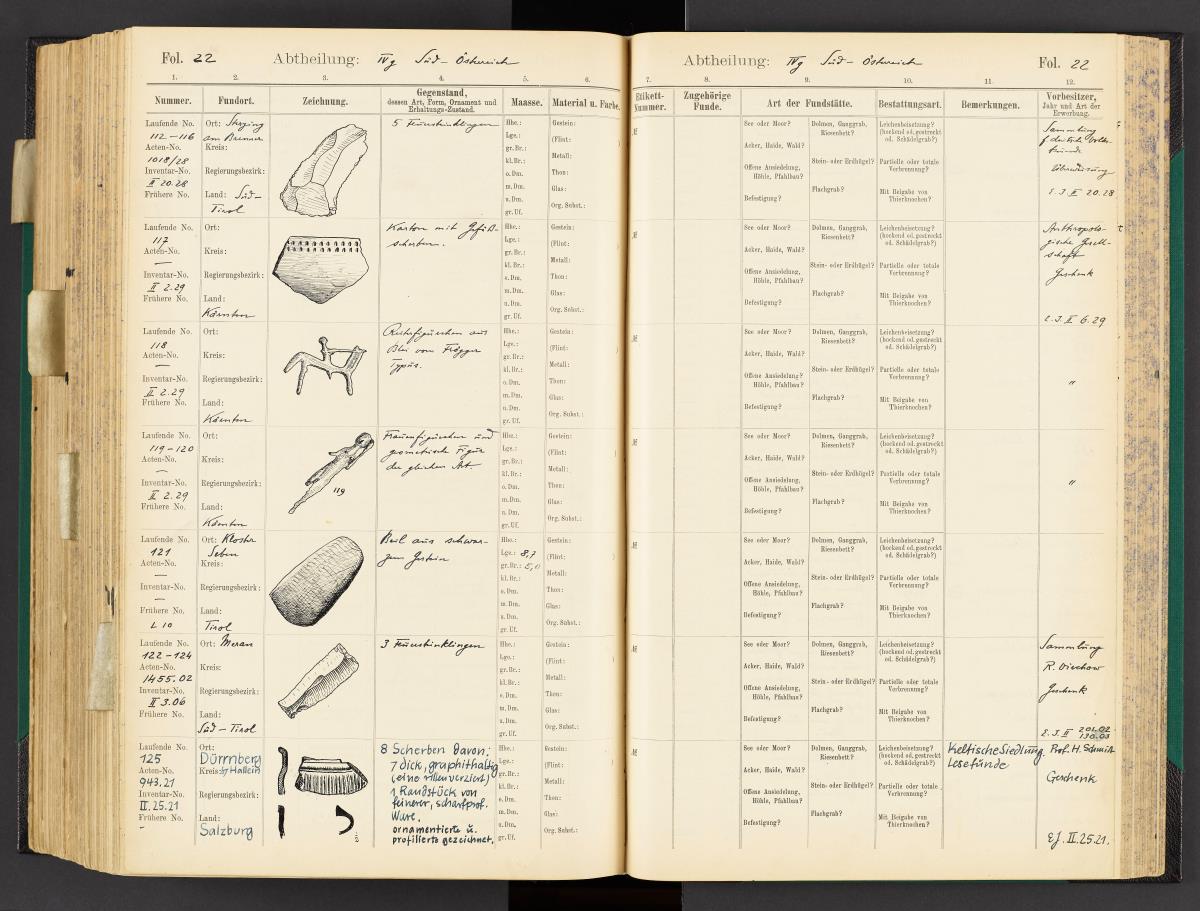 Fol. 22 Abtheilung: IVg Süd-Österreich
1. 2. 3. 4. 5. 6.
Nummer. Fundort. Zeichnung. Gegenstand, dessen Art, Form, Ornament und Erhaltungs-Zustand. Maasse. Material u. Farbe.
Laufende No. 112-116
Acten-No. 1018/28
Inventar-No. II 20.28
Frühere No.
Ort: Sterzing am Brenner
Kreis:
Regierungsbezirk:
Land: Süd-Tirol
5 Feuersteinklingen
Hhe.:
Lge.:
gr. Br.:
kl. Br.:
o. Dm.
m. Dm.
u. Dm.
gr. Uf.
Gestein:
(Flint:
Metall:
Thon:
Glas:
Org. Subst.:
Laufende No. 117
Acten-No. —
Inventar-No. II 2.29
Frühere No.
Ort:
Kreis:
Regierungsbezirk:
Land:
Kärnten
Karton mit Gefäß-
scherben.
Hhe.:
Lge.:
gr. Br.:
kl. Br.:
o. Dm.
m. Dm.
u. Dm.
gr. Uf.
Gestein:
(Flint:
Metall:
Thon:
Glas:
Org. Subst.:
Laufende No. 118
Acten-No. —
Inventar-No. II 2.29
Frühere No.
Ort:
Kreis:
Regierungsbezirk:
Land:
Kärnten
Reiterfigürchen aus
Blei vom Frögger
Typus.
Hhe.:
Lge.:
gr. Br.:
kl. Br.:
o. Dm.
m. Dm.
u. Dm.
gr. Uf.
Gestein:
(Flint:
Metall:
Thon:
Glas:
Org. Subst.:
Laufende No. 119-120
Acten-No. —
Inventar-No. II 2.29
Frühere No.
Ort:
Kreis:
Regierungsbezirk:
Land:
Kärnten
119
Frauenfigürchen und
geometrische Figur
der gleichen Art
Hhe.:
Lge.:
gr. Br.:
kl. Br.:
o. Dm.
m. Dm.
u. Dm.
gr. Uf.
Gestein:
(Flint:
Metall:
Thon:
Glas:
Org. Subst.:
Laufende No. 121
Acten-No. —
Inventar-No. —
Frühere No. L 10
Ort: Kloster
Seben
Kreis:
Regierungsbezirk:
Land:
Tirol
Beil aus schwar-
zem Gestein
Hhe.:
Lge.: 8,7
gr. Br.: 5,0
kl. Br.:
o. Dm.
m. Dm.
u. Dm.
gr. Uf.
Gestein:
(Flint:
Metall:
Thon:
Glas:
Org. Subst.:
Laufende No. 122-124
Acten-No. 1455.02
Inventar-No. II 3.06
Frühere No.
Ort: Meran
Kreis:
Regierungsbezirk:
Land:
Süd-Tirol
3 Feuersteinklingen
Hhe.:
Lge.:
gr. Br.:
kl. Br.:
o. Dm.
m. Dm.
u. Dm.
gr. Uf.
Gestein:
(Flint:
Metall:
Thon:
Glas:
Org. Subst.:
Laufende No. 125
Acten-No. 943.21
Inventar-No. II.25.21
Frühere No. -
Ort:
Dürrnberg
Kreis: by Hallein
Regierungsbezirk:
Land:
Salzburg
8 Scherben davon:
7 dick, graphithaltig
(eine rillenverziert)
1 Randstück von
feinerer, scharfprof.
Ware.
ornamentierte u.
profilierte gezeichnet.
Hhe.:
Lge.:
gr. Br.:
kl. Br.:
o. Dm.
m. Dm.
u. Dm.
gr. Uf.
Gestein:
(Flint:
Metall:
Thon:
Glas:
Org. Subst.:
Abtheilung: IVg Süd-Österreich Fol. 22
7. 8. 9. 10. 11. 12.
Etikett-Nummer. Zugehörige Funde. Art der Fundstätte. Bestattungsart. Bemerkungen. Vorbesitzer, Jahr und Art der Erwerbung.
See oder Moor? Dolmen, Ganggrab, Riesenbett?
Acker, Haide, Wald?
Offene Ansiedelung, Höhle, Pfahlbau? Stein- oder Erdhügel?
Flachgrab?
Befestigung?
Leichenbeisetzung? (hockend od. gestreckt od. Schädelgrab?)
Partielle oder totale Verbrennung?
Mit Beigabe von Thierknochen?
Sammlung
f deutsche Volks-
kunde
Überweisung
E. J. II 20.28
See oder Moor? Dolmen, Ganggrab, Riesenbett?
Acker, Haide, Wald?
Offene Ansiedelung, Höhle, Pfahlbau? Stein- oder Erdhügel?
Flachgrab?
Befestigung?
Leichenbeisetzung? (hockend od. gestreckt od. Schädelgrab?)
Partielle oder totale Verbrennung?
Mit Beigabe von Thierknochen?
Anthropolo-
gische Gesell-
schaft
Geschenk
E. J. II 6.29
See oder Moor? Dolmen, Ganggrab, Riesenbett?
Acker, Haide, Wald?
Offene Ansiedelung? Höhle, Pfahlbau? Stein- oder Erdhügel?
Flachgrab?
Befestigung?
Leichenbeisetzung? (hockend od. gestreckt od. Schädelgrab?)
Partielle oder totale Verbrennung?
Mit Beigabe von Thierknochen?
"
See oder Moor? Dolmen, Ganggrab, Riesenbett?
Acker, Haide, Wald?
Offene Ansiedelung, Höhle, Pfahlbau? Stein- oder Erdhügel?
Flachgrab?
Befestigung?
Leichenbeisetzung? (hockend od. gestreckt od. Schädelgrab?)
Partielle oder totale Verbrennung?
Mit Beigabe von Thierknochen?
"
See oder Moor? Dolmen, Ganggrab, Riesenbett?
Acker, Haide, Wald?
Offene Ansiedelung, Höhle, Pfahlbau? Stein- oder Erdhügel?
Flachgrab?
Befestigung?
Leichenbeisetzung? (hockend od. gestreckt od. Schädelgrab?)
Partielle oder totale Verbrennung?
Mit Beigabe von Thierknochen?
See oder Moor? Dolmen, Ganggrab, Riesenbett?
Acker, Haide, Wald?
Offene Ansiedelung, Höhle, Pfahlbau? Stein- oder Erdhügel?
Flachgrab?
Befestigung?
Leichenbeisetzung? (hockend od. gestreckt od. Schädelgrab?)
Partielle oder totale Verbrennung?
Mit Beigabe von Thierknochen?
Sammlung
R. Virchow
Geschenk
E. J. II 201.02
130.03
See oder Moor? Dolmen, Ganggrab, Riesenbett?
Acker, Haide, Wald?
Offene Ansiedelung, Höhle, Pfahlbau? Stein- oder Erdhügel?
Flachgrab?
Befestigung?
Leichenbeisetzung? (hockend od. gestreckt od. Schädelgrab?)
Partielle oder totale Verbrennung?
Mit Beigabe von Thierknochen?
Keltische Siedlung.
Lesefunde
Prof. H. Schmidt
Geschenk
EJ. II.25.21.